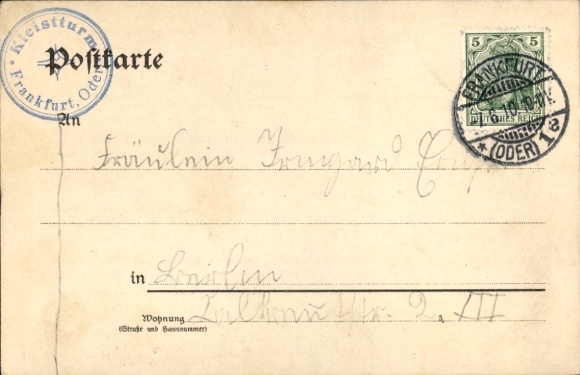 Kleistturm
Frankfurt, Oder
Postkarte
5 5
DEUTSCHES REICH
FRANKFURT
(ODER) 1a
An
Fräulein Irmgard
in Berlin
Wohnung
(Straße und Hausnummer)
2, III